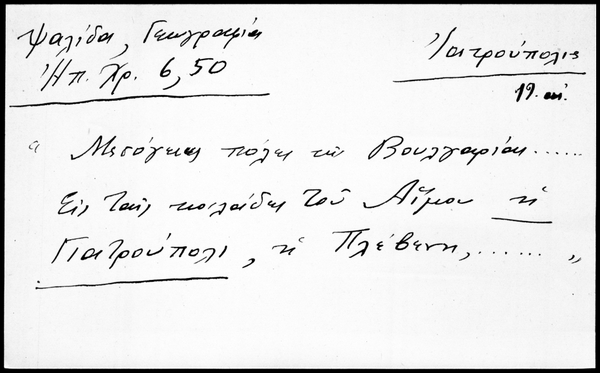 Ψαλίδα, Γεωγραφία
Ἠπ. Χρ. 6, 50
Ἰατρούπολις
19. αἰ.
" Μεσόγειες πόλες τῆς Βουλγαρίας......
Εἰς ταῖς κοιλάδες τοῦ Αἵμου ἡ
Γιατρούπολι, ἡ Πλέβενη, ...... "